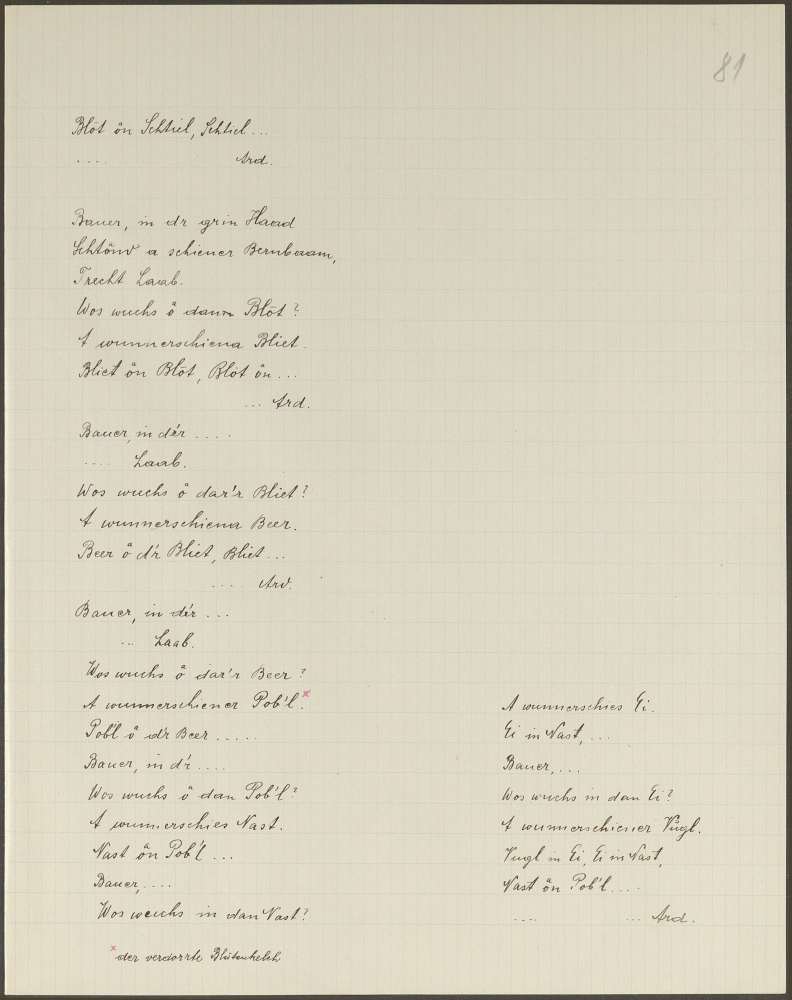 81
Blöt ön Schtiel, Schtiel ...
.... Ard.
Bauer, in dr grin Haad
Schtönd a schiener Bernbaam,
Trecht Laab.
Wos wuchs ö dann Blöt?
A wunnerschiena Bliet.
Bliet ön Blöt, Blöt ön ...
... Ard.
Bauer, in dr ....
.... Laab.
Wos wuchs ö dar'r Bliet?
A wunnerschiena Beer.
Beer ö d'r Bliet, Bliet ...
.... Ard.
Bauer, in dr ...
... Laab.
Wos wuchs ö dar'r Beer?
A wunnerschiener Pob'l.ˣ
Pob'l ö d'r Beer .....
Bauer, in d'r ....
Wos wuchs ö dan Pob'l?
A wunnerschies Nast.
Nast ön Pob'l ...
Bauer, ....
Wos wuchs in dan Nast?
ˣ der verdorrte Blütenkelch
A wunnerschies Ei.
Ei in Nast, ...
Bauer, ...
Wos wuchs in dan Ei?
A wunnerschiener Vugl.
Vugl in Ei, Ei in Nast,
Nast ön Pob'l ....
.... ... Ard.